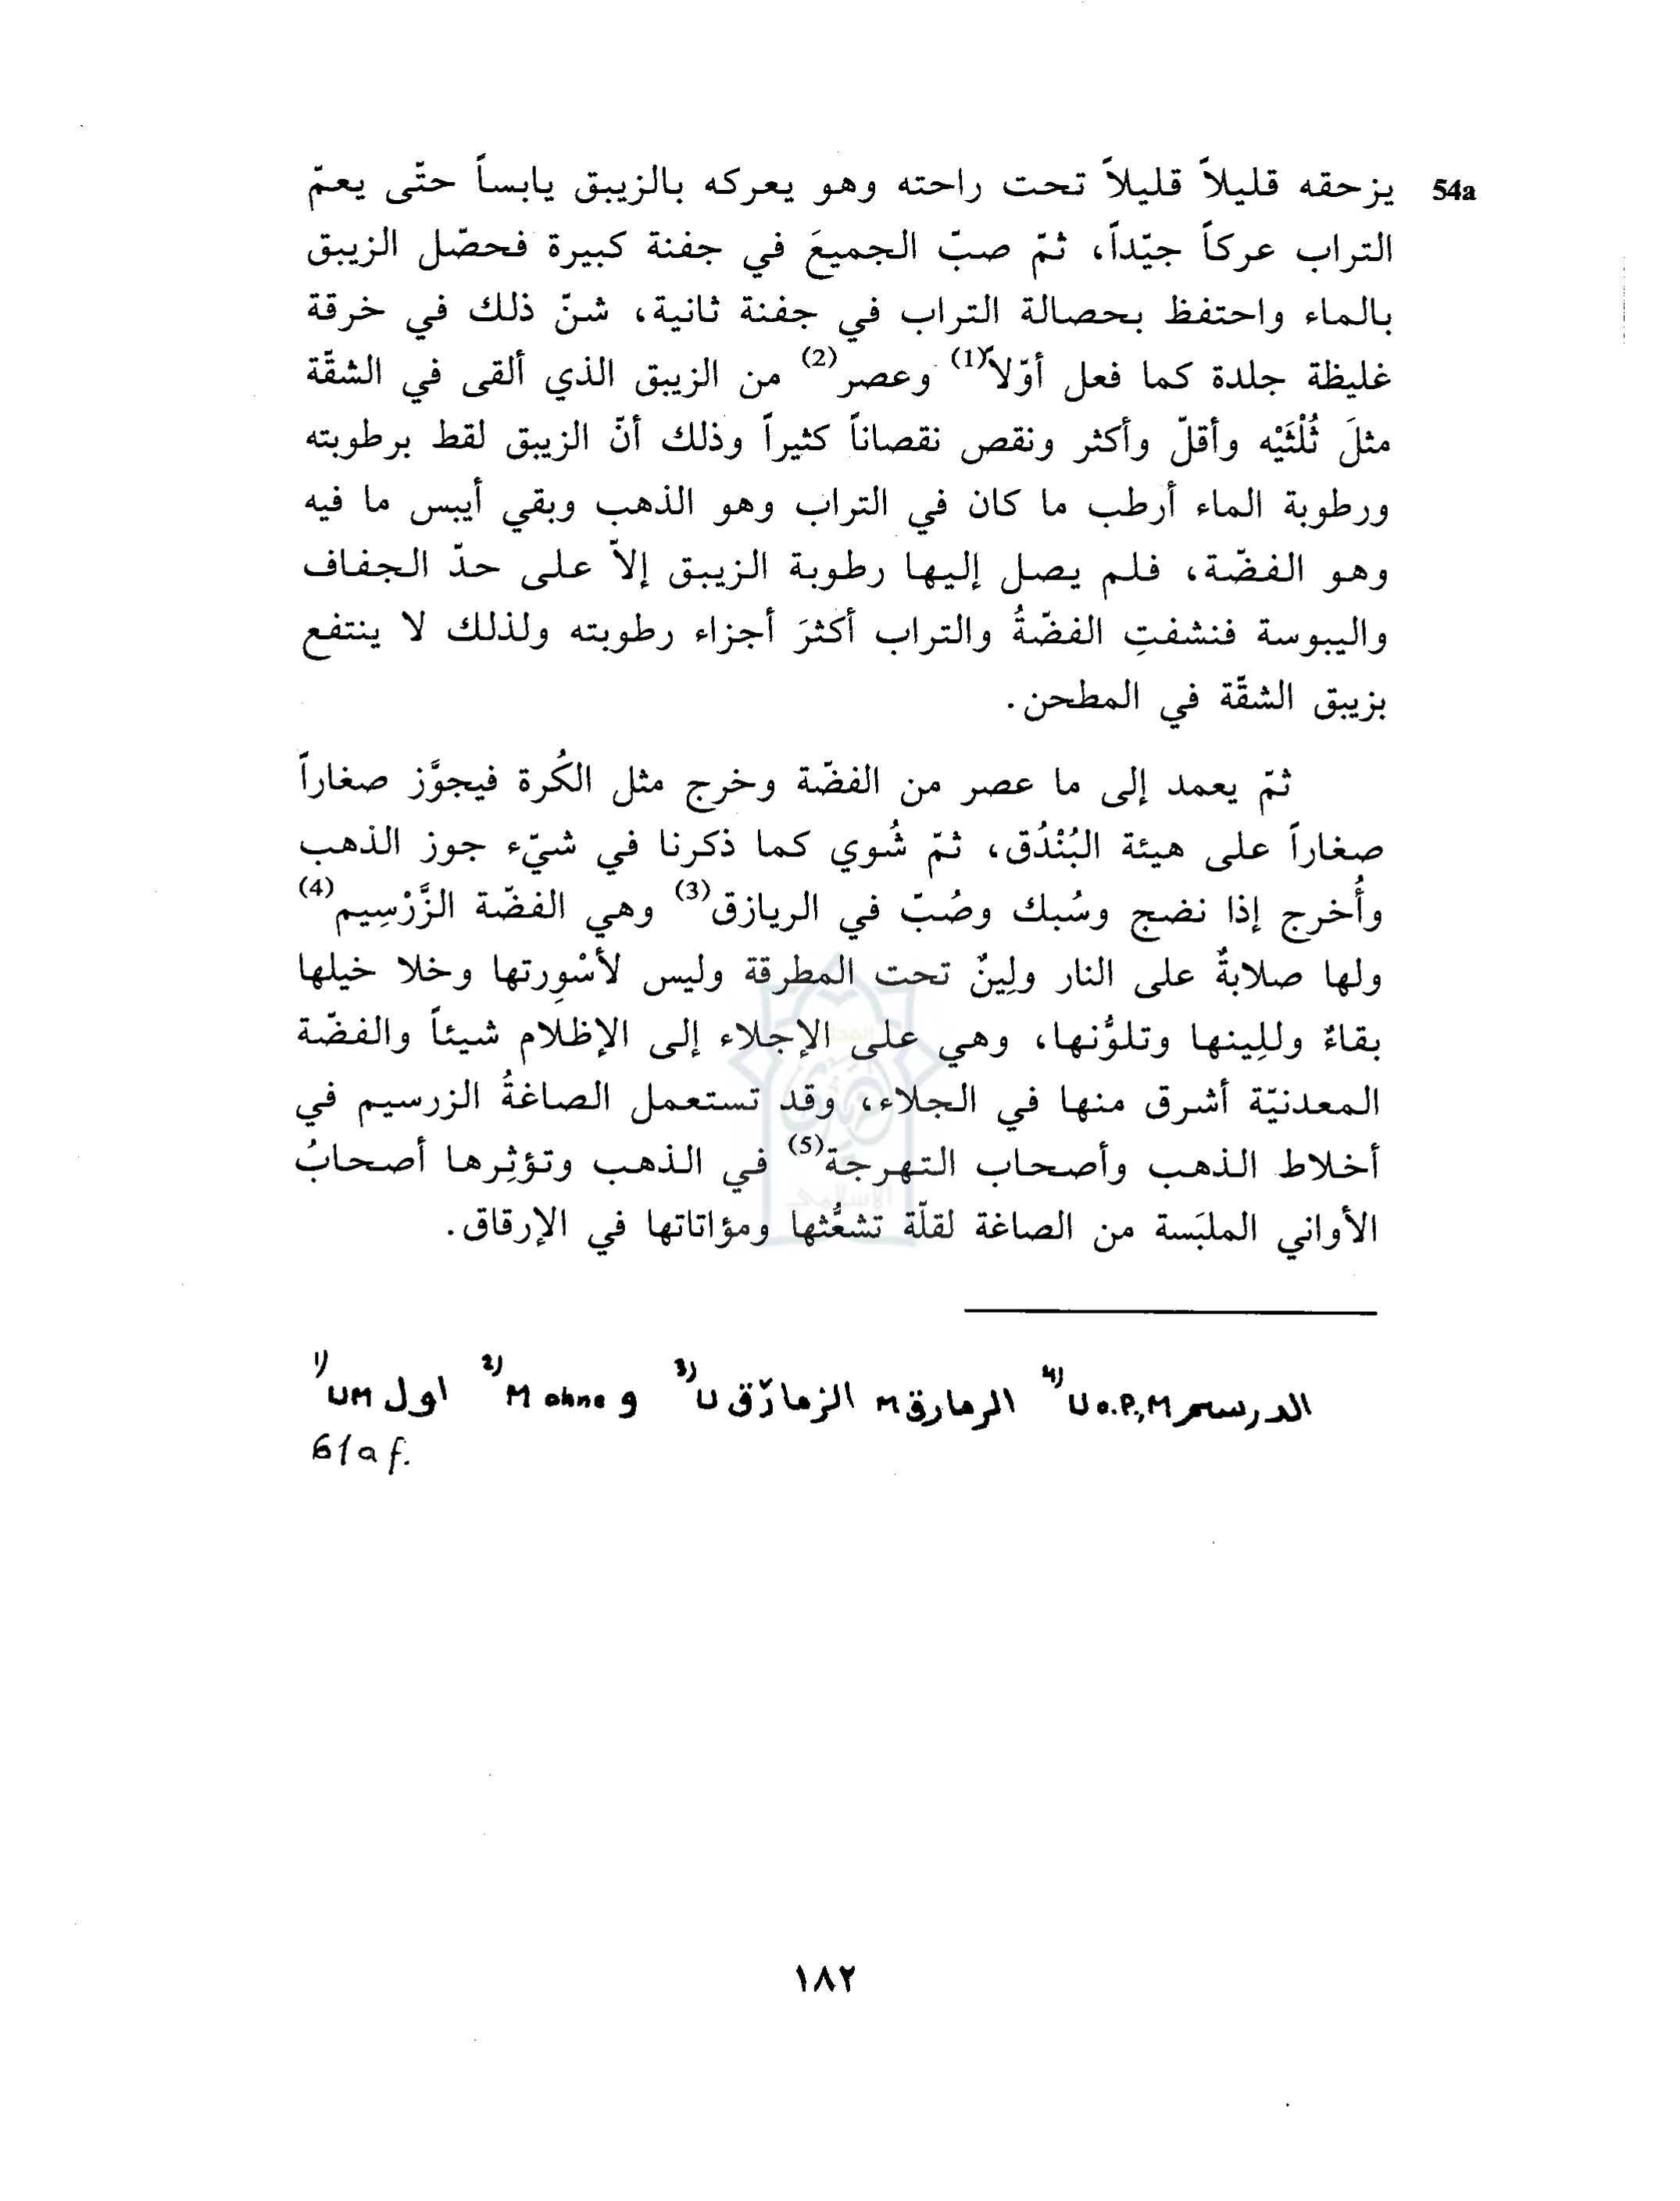 54a يزحقه قليلاً قليلاً تحت راحته وهو يعركه بالزيبق يابساً حتّى يعمّ
التراب عركاً جيّداً، ثمّ صبّ الجميعَ في جفنة كبيرة فحصّل الزيبق
بالماء واحتفظ بحصالة التراب في جفنة ثانية، شنّ ذلك في خرقة
غليظة جلدة كما فعل أوّلاً(1) وعصر(2) من الزيبق الذي ألقى في الشقّة
مثلَ ثُلْثَيْه وأقلّ وأكثر ونقص نقصاناً كثيراً وذلك أنّ الزيبق لقط برطوبته
ورطوبة الماء أرطب ما كان في التراب وهو الذهب وبقي أيبس ما فيه
وهو الفضّة، فلم يصل إليها رطوبة الزيبق إلاّ على حدّ الجفاف
واليبوسة فنشفتِ الفضّةُ والتراب أكثرَ أجزاء رطوبته ولذلك لا ينتفع
بزيبق الشقّة في المطحن.
ثمّ يعمد إلى ما عصر من الفضّة وخرج مثل الكُرة فيجوَّز صغاراً
صغاراً على هيئة البُنْدُق، ثمّ شُوي كما ذكرنا في شيّء جوز الذهب
وأُخرج إذا نضج وسُبك وصُبّ في الريازق(3) وهي الفضّة الزَّرْسِيم(4)
ولها صلابةٌ على النار ولِينٌ تحت المطرقة وليس لأسْوِرتها وخلا خيلها
بقاءٌ وللِينها وتلوُّنها، وهي على الإجلاء إلى الإظلام شيئاً والفضّة
المعدنيّة أشرق منها في الجلاء، وقد تستعمل الصاغةُ الزرسيم في
أخلاط الذهب وأصحاب التهرجة(5) في الذهب وتؤثِرها أصحابُ
الأواني الملبَسة من الصاغة لقلّة تشعُّثها ومؤاتاتها في الإرقاق.
1) UM اول 2) M ohne و 3) U الزمازق M الرمارق 4) U o.P., M الدرسىم
61a f.
١٨٢